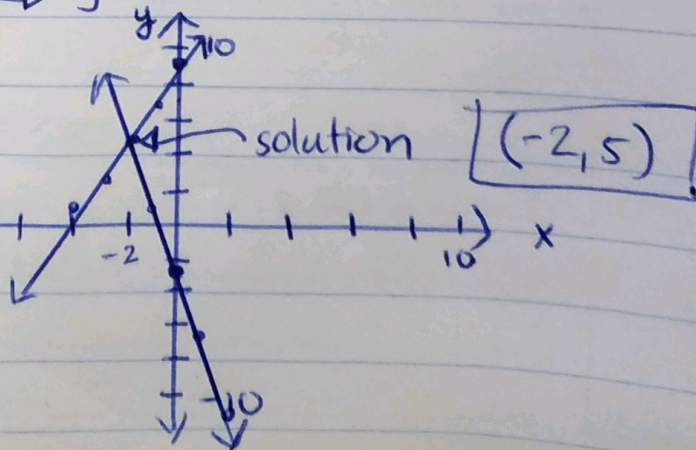 y
10
solution
(-2,5)
-2
10
x
-10